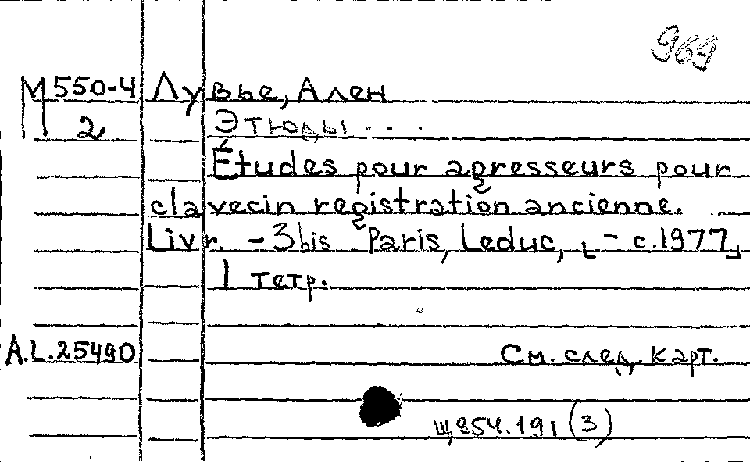 969
М550-4 Лувье, Ален
2 Этюды...
Études pour agresseurs pour
clavecin registration ancienne.
Livr. - 3bis Paris, Leduc, [- c.1977]
1 тетр.
A.L.25490 См. след. карт.
Щ854.191(3)